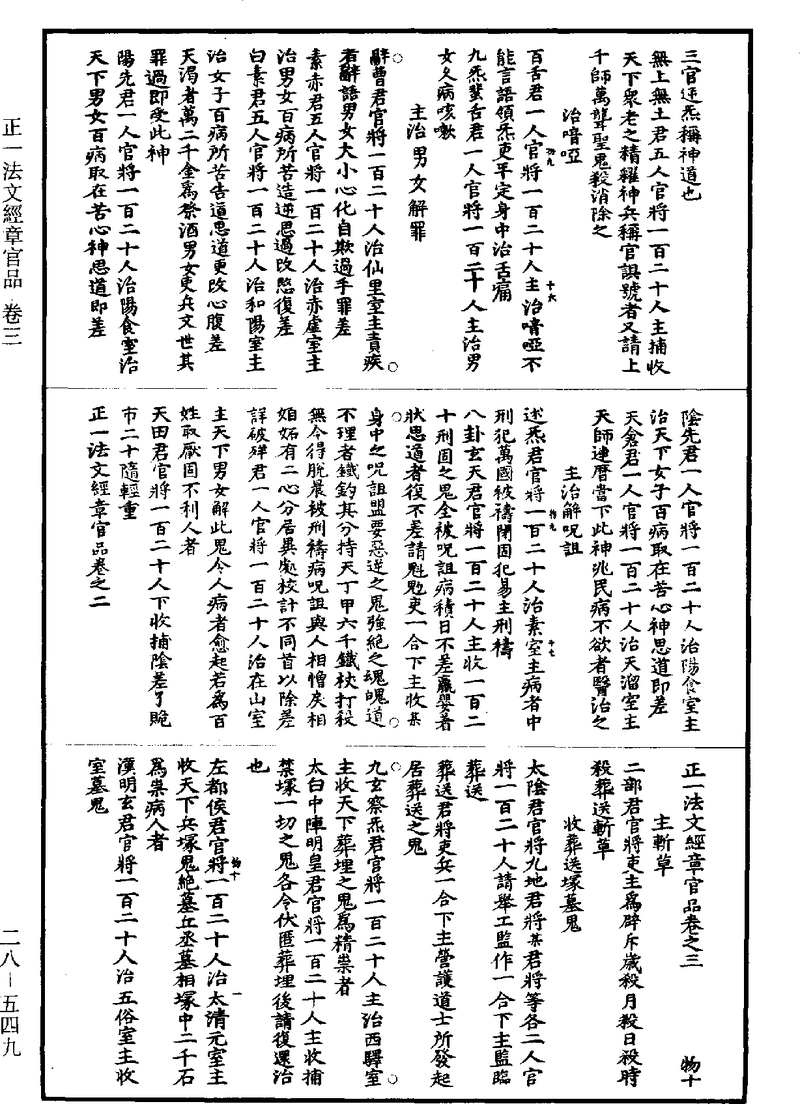 三官逆炁稱神道也
無上無土君五人官將一百二十人主捕收
天下衆老之精羅神兵稱官設號者又請上
千師萬聾聖鬼殺消除之
治喑啞
百舌君一人官將一百二十人主治喑啞不
能言語領炁更平定身中治舌痛
九炁蜚舌君一人官將一百二十人主治男
女久病咳嗽
主治男女解罪
辭曹君官將一百二十人治仙里室主責疾
者辭語男女大小心化自欺過手罪差
素赤君五人官將一百二十人治赤虛室主
治男女百病所苦造逆思過改愆復差
白素君五人官將一百二十人治和陽室主
治女子百病所苦告逼思道更改心腹差
天渴者萬二千金爲祭酒男女吏兵文世其
罪過即受此神
陽先君一人官將一百二十人治陽食室治
天下男女百病取在苦心神思道即差
陰先君一人官將一百二十人治陽食室主
治天下女子百病取在苦心神思道即差
天倉君一人官將一百二十人治天溜室主
天師連曆當下此神兆民病不欲者醫治之
主治解呪詛
述炁君官將一百二十人治素室主病者中
刑犯萬國被禱閉固犯易主刑禱
八卦玄天君官將一百二十人主收一百二
十刑固之鬼全被呪詛病積日不差羸嬰著
狀思道者復不差請魁吏一合下主收某
身中之呪詛盟要惡逆之鬼強絶之魂魄道
不理者鐵鈎其分持天丁甲六千鐵杖打殺
無令得脫晨被刑禱病呪詛與人相憎矣相
妬妬有二心分居異處校計不同首以除差
詳破殃君一人官將一百二十人治在山室
主天下男女解此鬼令人病者愈起若爲百
姓取厭固不利人者
天田君官將一百二十人下收捕陰差了賧
市二十隨輕重
正一法文經章官品卷之二
正一法文經章官品卷之三
物十
主斬草
二部君官將吏主爲辟斥歲殺月殺日殺時
殺葬送斬草
收葬送塚墓鬼
太陰君官將九地君將某君將等各二人官
將一百二十人請舉工監作一合下主監臨
葬送
葬送君將吏兵一合下主營護道士所發起
居葬送之鬼
九玄察炁君官將一百二十人主治西驛室
主收天下葬埋之鬼爲精祟者
太白中陣明皇君官將一百二十人主收捕
禁塚一切之鬼各令伏匿葬埋後請復還治
也
左都侯君官將一百二十人治太清元室主
收天下兵塚鬼絶墓丘丞墓相塚中二千石
爲祟病人者
漢明玄君官將一百二十人治五俗室主收
室墓鬼
正一法文經章官品 卷三
二八-五四九